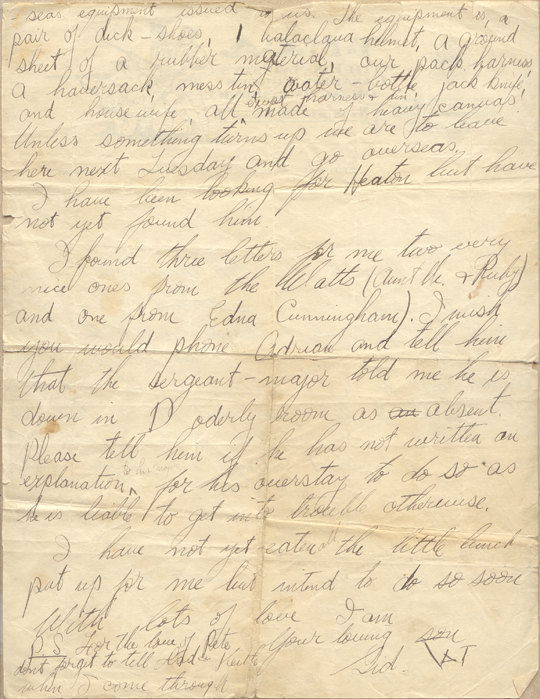 seas equipment issued to us. The equipment is, a
pair of dick-shoes, 1 balaclaua helmet, a ground
sheet of a rubber material, our pack harness
a haversack, mess tin, water-bottle, jack knife,
and housewife, all made of heavy canvas.
except harness + tin
Unless something turns up we are to leave
here next Tuesday and go overseas.
I have been looking for Heaton but have
not yet found him.
I found three letters for me two very
nice ones from the Watts (Aunt M. & Ruby)
and one from Edna Cunningham). I wish
you would phone Adrian and tell him
that the sergeant-major told me he is
down in D oderly room as an absent.
Please tell him if he has not written an
explanation, for his overstay to do so as
he is liable to get into trouble otherwise.
I have not yet eaten all the little lunch
put up for me but intend to do so soon
With lots of love I am
Your loving son
Sid.
P.S. For the love of Pete
don't forget to tell
when I come through